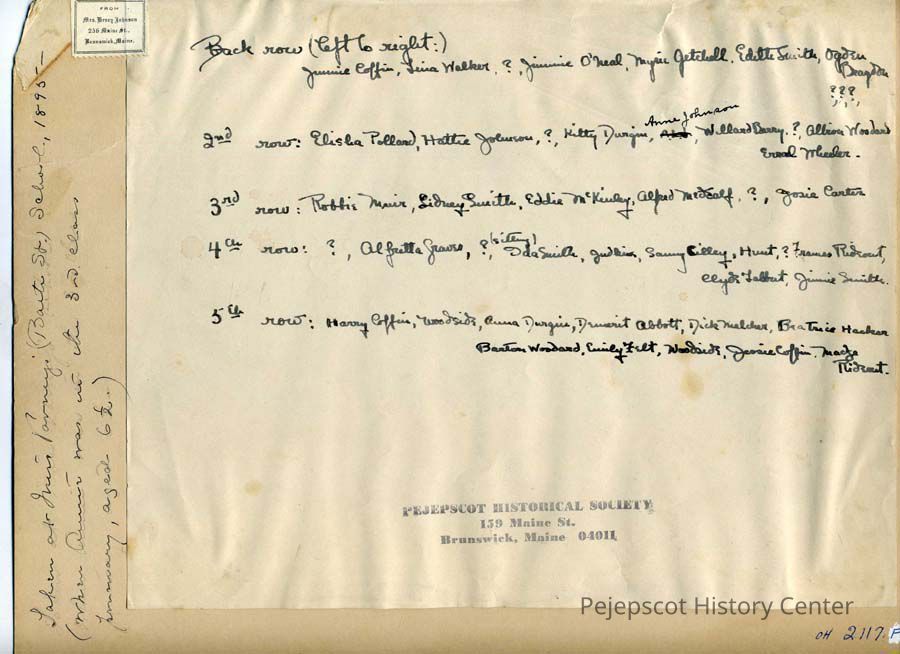 FROM
Mrs. Henry Johnson
256 Maine St.,
Brunswick, Maine.
Back row (left to right:)
Jimmie Coffin, Lina Walker, ?, Jimmie O'Neal, Myrie Getchell, Edith Smith, Ogden
Bragdon
???
Anne Johnson
2nd row: Elisha Pollard, Hattie Johnson, ?, Kitty Durgin, Willard Barry, ?, Albion Woodard
Errol Wheeler.
3rd row: Robbie Muir, Sidney Smith, Eddie McKinley, Alfred Metcalf, ?, Josie Carter
(sitting)
4th row: ?, Alfretta Graves, ?, Ida Smith, Judkins, Sammy Cilley, Hunt, ? Frances Rideout,
Clyde Talbut, Jimmie Smith.
5th row: Harry Coffin, Woodside, Anna Durgin, Demerit Abbott, Dick Melcher, Beatrice Hacker
Barton Woodard, Emily Felt, Woodside, Jessie Coffin, Madge
Rideout.
Taken at Miss (Bath St.) School, 1895—
(When Annie was in the 3rd class
primary, aged 6½.)
PEJEPSCOT HISTORICAL SOCIETY
159 Maine St.
Brunswick, Maine 04011
Pejepscot History Center
OH 2117.F